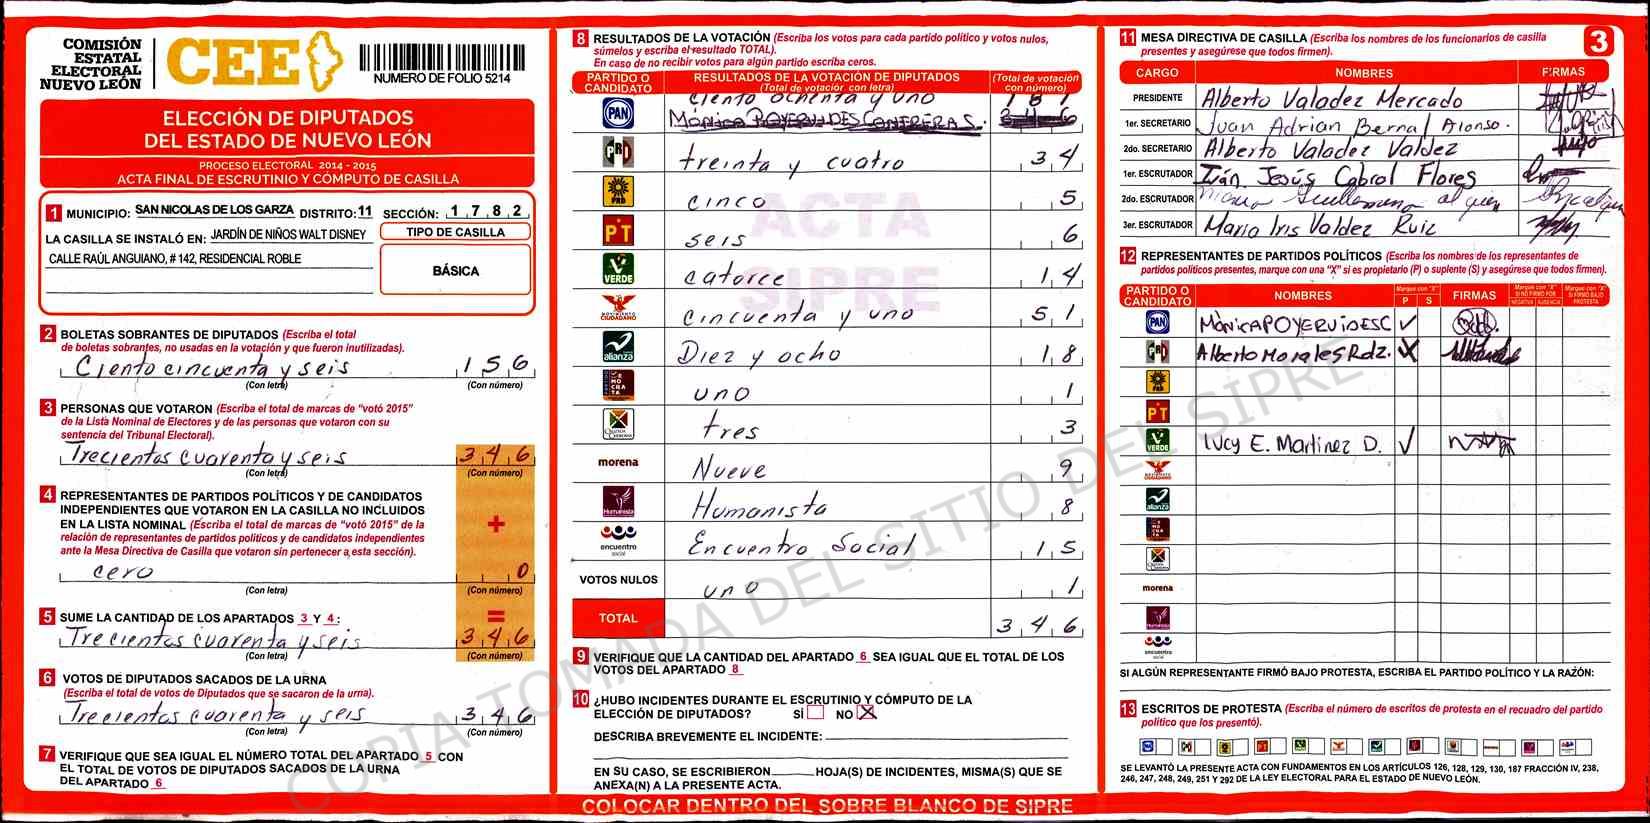 COMISIÓN
ESTATAL
ELECTORAL
NUEVO LEÓN
CEE
NUMERO DE FOLIO 5214
ELECCIÓN DE DIPUTADOS
DEL ESTADO DE NUEVO LEÓN
PROCESO ELECTORAL 2014 - 2015
ACTA FINAL DE ESCRUTINIO Y CÓMPUTO DE CASILLA
1 MUNICIPIO: SAN NICOLAS DE LOS GARZA DISTRITO: 11 SECCIÓN: 1 7 8 2
LA CASILLA SE INSTALÓ EN: JARDÍN DE NIÑOS WALT DISNEY
CALLE RAÚL ANGUIANO, # 142, RESIDENCIAL ROBLE
TIPO DE CASILLA
BÁSICA
2 BOLETAS SOBRANTES DE DIPUTADOS (Escriba el total
de boletas sobrantes, no usadas en la votación y que fueron inutilizadas).
Ciento cincuenta y seis 1 5 6
(Con letra) (Con número)
3 PERSONAS QUE VOTARON (Escriba el total de marcas de “votó 2015”
de la Lista Nominal de Electores y de las personas que votaron con su
sentencia del Tribunal Electoral).
Trecientos cuarenta y seis 3 4 6
(Con letra) (Con número)
4 REPRESENTANTES DE PARTIDOS POLÍTICOS Y DE CANDIDATOS
INDEPENDIENTES QUE VOTARON EN LA CASILLA NO INCLUIDOS
EN LA LISTA NOMINAL (Escriba el total de marcas de “votó 2015” de la
relación de representantes de partidos políticos y de candidatos independientes
ante la Mesa Directiva de Casilla que votaron sin pertenecer a esta sección).
+
cero 0
(Con letra) (Con número)
5 SUME LA CANTIDAD DE LOS APARTADOS 3 Y 4: =
Trecientos cuarenta y seis 3 4 6
(Con letra) (Con número)
6 VOTOS DE DIPUTADOS SACADOS DE LA URNA
(Escriba el total de votos de Diputados que se sacaron de la urna).
Trecientos cuarenta y seis 3 4 6
(Con letra) (Con número)
7 VERIFIQUE QUE SEA IGUAL EL NÚMERO TOTAL DEL APARTADO 5 CON
EL TOTAL DE VOTOS DE DIPUTADOS SACADOS DE LA URNA
DEL APARTADO 6
8 RESULTADOS DE LA VOTACIÓN (Escriba los votos para cada partido político y votos nulos,
súmelos y escriba el resultado TOTAL).
En caso de no recibir votos para algún partido escriba ceros.
PARTIDO O CANDIDATO RESULTADOS DE LA VOTACIÓN DE DIPUTADOS (Total de votación con letra) (Total de votación con número)
ciento ochenta y uno 1 8 1
PAN Mónica POYERVIDES CONTRERAS. 3 4 6
PRD treinta y cuatro 3 4
PRD cinco 5
PT seis 6
VERDE catorce 1 4
MOVIMIENTO CIUDADANO cincuenta y uno 5 1
alianza Diez y ocho 1 8
DEMOCRATA uno 1
CRUZADA CIUDADANA tres 3
morena Nueve 9
Humanista Humanista 8
encuentro social Encuentro Social 1 5
VOTOS NULOS uno 1
TOTAL 3 4 6
ACTA
SIPRE
9 VERIFIQUE QUE LA CANTIDAD DEL APARTADO 6 SEA IGUAL QUE EL TOTAL DE LOS
VOTOS DEL APARTADO 8
10 ¿HUBO INCIDENTES DURANTE EL ESCRUTINIO Y CÓMPUTO DE LA
ELECCIÓN DE DIPUTADOS? SÍ NO X
DESCRIBA BREVEMENTE EL INCIDENTE:
EN SU CASO, SE ESCRIBIERON HOJA(S) DE INCIDENTES, MISMA(S) QUE SE
ANEXA(N) A LA PRESENTE ACTA.
COLOCAR DENTRO DEL SOBRE BLANCO DE SIPRE
11 MESA DIRECTIVA DE CASILLA (Escriba los nombres de los funcionarios de casilla
presentes y asegúrese que todos firmen).
3
CARGO NOMBRES FIRMAS
PRESIDENTE Alberto Valadez Mercado
1er. SECRETARIO Juan Adrian Bernal Alonso.
2do. SECRETARIO Alberto Valadez Valdez
1er. ESCRUTADOR Iván Jesús Cabral Flores
2do. ESCRUTADOR
3er. ESCRUTADOR Maria Iris Valdez Ruiz
12 REPRESENTANTES DE PARTIDOS POLÍTICOS (Escriba los nombres de los representantes de
partidos políticos presentes, marque con una “X” si es propietario (P) o suplente (S) y asegúrese que todos firmen).
PARTIDO O CANDIDATO NOMBRES Marque con "X" P S FIRMAS Marque con "X" SI NO FIRMÓ POR NEGATIVA AUSENCIA Marque con "X" SI FIRMÓ BAJO PROTESTA
PAN MònicaPOYERVIDESC
PRD Alberto Morales Rdz. X
PRD
PT
VERDE Lucy E. Martinez D.
MOVIMIENTO CIUDADANO
alianza
morena
Humanista
encuentro social
SI ALGÚN REPRESENTANTE FIRMÓ BAJO PROTESTA, ESCRIBA EL PARTIDO POLÍTICO Y LA RAZÓN:
13 ESCRITOS DE PROTESTA (Escriba el número de escritos de protesta en el recuadro del partido
político que los presentó).
SE LEVANTÓ LA PRESENTE ACTA CON FUNDAMENTOS EN LOS ARTÍCULOS 126, 128, 129, 130, 187 FRACCIÓN IV, 238,
246, 247, 248, 249, 251 Y 292 DE LA LEY ELECTORAL PARA EL ESTADO DE NUEVO LEÓN.
COPIA TOMADA DEL SITIO DEL SIPRE